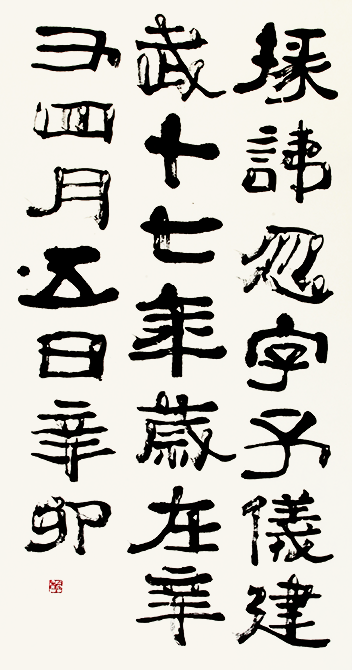 掾諱忽字子儀建
武十七年歲在辛
丑四月五日辛卯